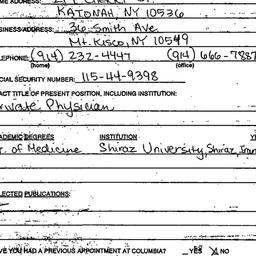 ME ADDRESS:
KATONAH, NY 10536
SINESS ADDRESS: 36 Smith Ave
Mt. Kisco, NY 10549
EPHONE: (914) 232-4447 (914) 666-7887
(home) (office)
CIAL SECURITY NUMBER: 115-44-9398
ACT TITLE OF PRESENT POSITION, INCLUDING INSTITUTION:
rivate Physician
ADEMIC DEGREES INSTITUTION Y
. of Medicine Shiraz University, Shiraz, Iran
LECTED PUBLICATIONS:
VE YOU HAD A PREVIOUS APPOINTMENT AT COLUMBIA? YES X NO